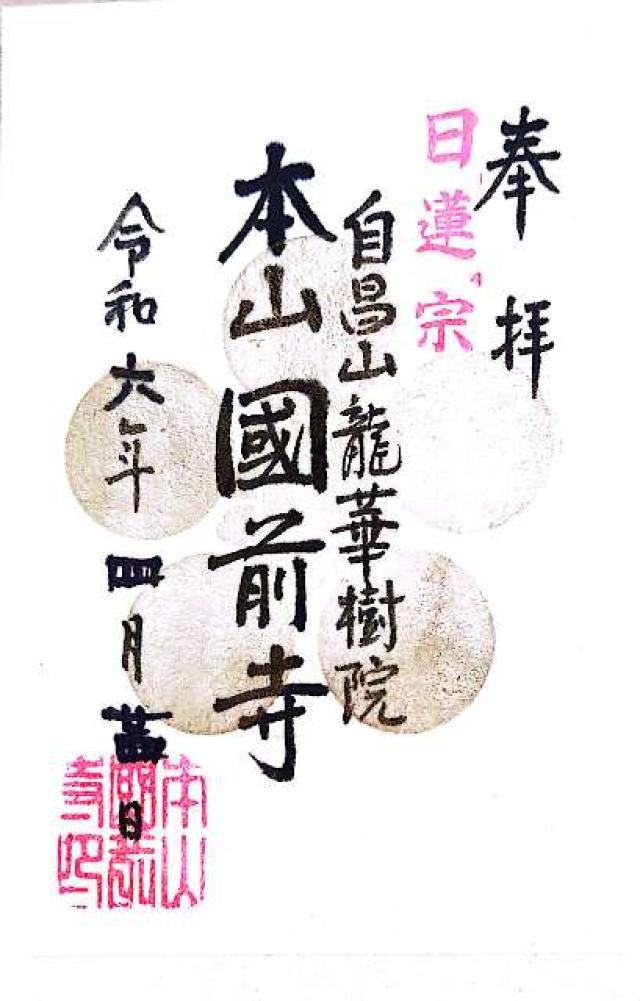 奉拝
日蓮宗
自昌山龍華樹院
本山國前寺
令和六年四月 日
本山國前寺印